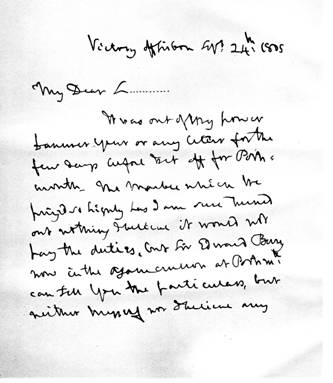 Victory off Lisbon Sepr. 24th. 1805
My Dear L............
It was out of My power
to answer your or any letter for the
few days before I set off for Portsmouth
The Marble which We
prized so highly has I am sure turned
out nothing I believe it would not
pay the duties, but Sir Edward Berry
now in the Agamemnon at Portsmth
can tell You the particulars, but
neither Myself nor I believe any